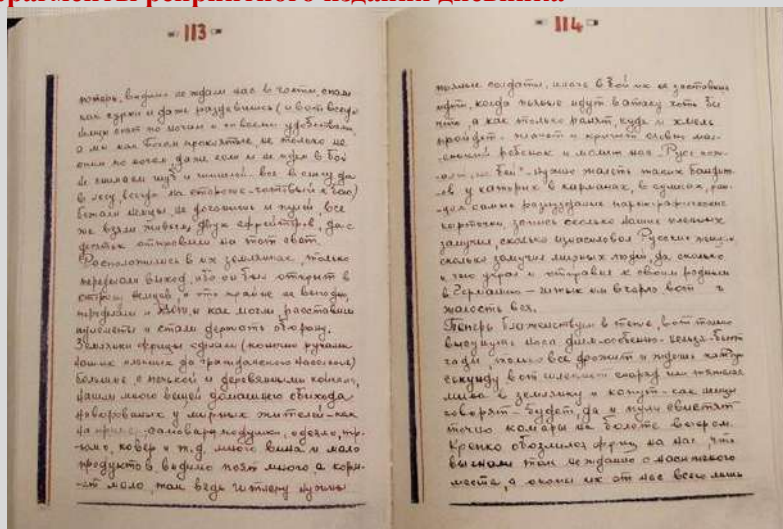 фрагменты репринтного издания дневника
113
потерь, видимо не ждали нас в гости, спали
как сурки и даже раздевшись (и вот всегда
немцы спят по ночам и со всеми удобствами,
а мы как богом проклятые, не только не
спим по ночам, даже если и не идем в бой
не снимаем шуб и шинелей, все в снегу да
в лесу, всегда на стороже
бежали немцы, не догонишь и пулей, все
же взяли живьем двух ефрейторов, да с
десяток отправили на тот свет.
Расположились в их землянках, только
переделали выход, ибо он был открыт в
сторону немцев, а это крайне не выгодно,
переделали и как могли, расставили
пулеметы и стали держать оборону.
Землянки фрицы сделали (конечно руками
наших пленных да гражданского населения)
большие с печкой и деревянными
нашли много вещей домашнего обихода
наворованных у мирных жителей - как
на пример - самовар, подушки, одеяло, тр-
юмо, ковер и т.д. много вина и мало
продуктов, видимо поят много, а корм-
ят мало, так ведь гитлеру нужны
114
пьяные солдаты, иначе в бой их не заставишь
идти, когда пьяные идут в атаку хоть бы
что, а как только ранят, куда и хмель
пройдет - плачет и кричит словно мал-
енький ребенок и молит нас "Рус
не бей" - нужно жалеть таких бандит-
ов у которых в карманах, в сумках,
самые разнузданные порнографические
карточки, запись сколько наших пленных
замучил, сколько изнасиловал Русских
сколько замучил мирных людей, да сколько
и что украл и отправил к своим родным
в Германию - штык им в горло вот и
жалость вся.
Теперь блаженствуем в тепле, вот только
высунуть носа нельзя - бьют
гады, только все дрожит и ждешь каждую
секунду вот шлепнет снаряд или тяжелая
мина в землянку и капут - как немцы
говорят - будет, да и пули свистят
точно комары на болоте вечером.
Крепко обозлились фрицы на нас, что
выгнали так нежданно с насиженного
места, а окопы их от нас всего лишь